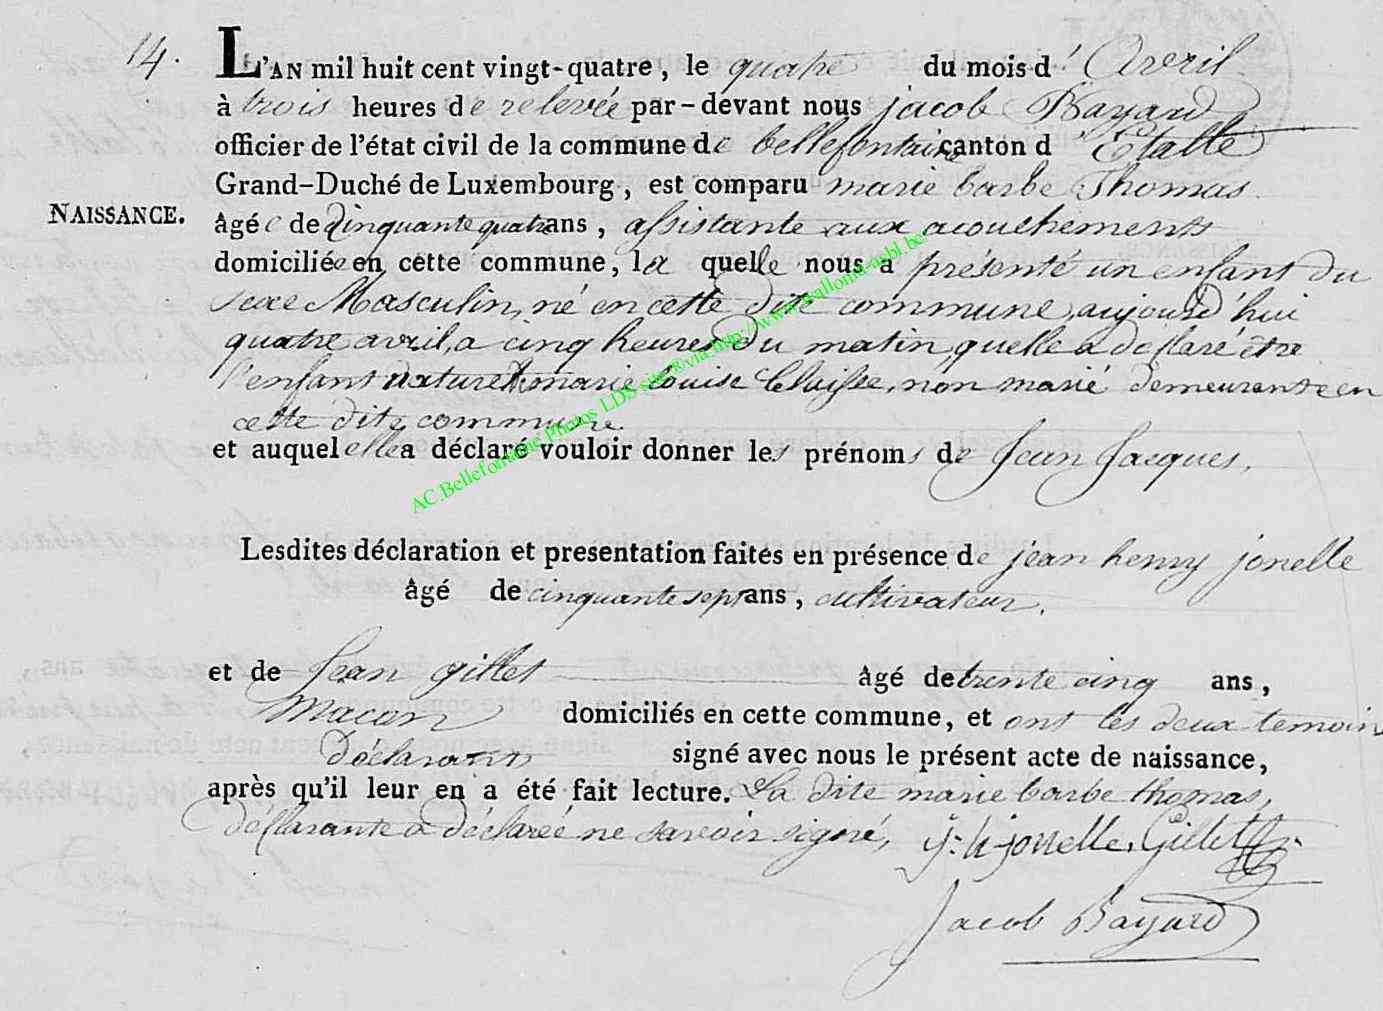 14.
L'AN mil huit cent vingt-quatre, le quatre du mois d' Avril
à trois heures de relevée par-devant nous jacob Bayard
officier de l'état civil de la commune de bellefontaine canton d' Etalle
Grand-Duché de Luxembourg, est comparu marie barbe Thomas
NAISSANCE.
âgée de Cinquante quatre ans, assistante aux acouchements
domiciliée en cette commune, la quelle nous a présenté un enfant du
sexe Masculin, né en cette dite commune, aujourd'hui
quatre avril, a cinq heures du matin, quelle a déclaré être
l'enfant naturel marie louise, non marié demeurante en
cette dite commune.
et auquel elle a déclaré vouloir donner les prénoms de Jean Jacques,
AC.Bellefontaine Photos LDS site®via http://www.wallonia-asbl.be
Lesdites déclaration et presentation faites en présence de jean henry jonelle
âgé de cinquante sept ans, cultivateur.
et de Jean gillet âgé de trente cinq ans,
Macon domiciliés en cette commune, et ont les deux temoin
déclarant signé avec nous le présent acte de naissance,
après qu'il leur en a été fait lecture. La dite marie barbe thomas,
déclarante a déclareé ne savoir signé, j: h: jonelle, Gillet
Jacob Bayard